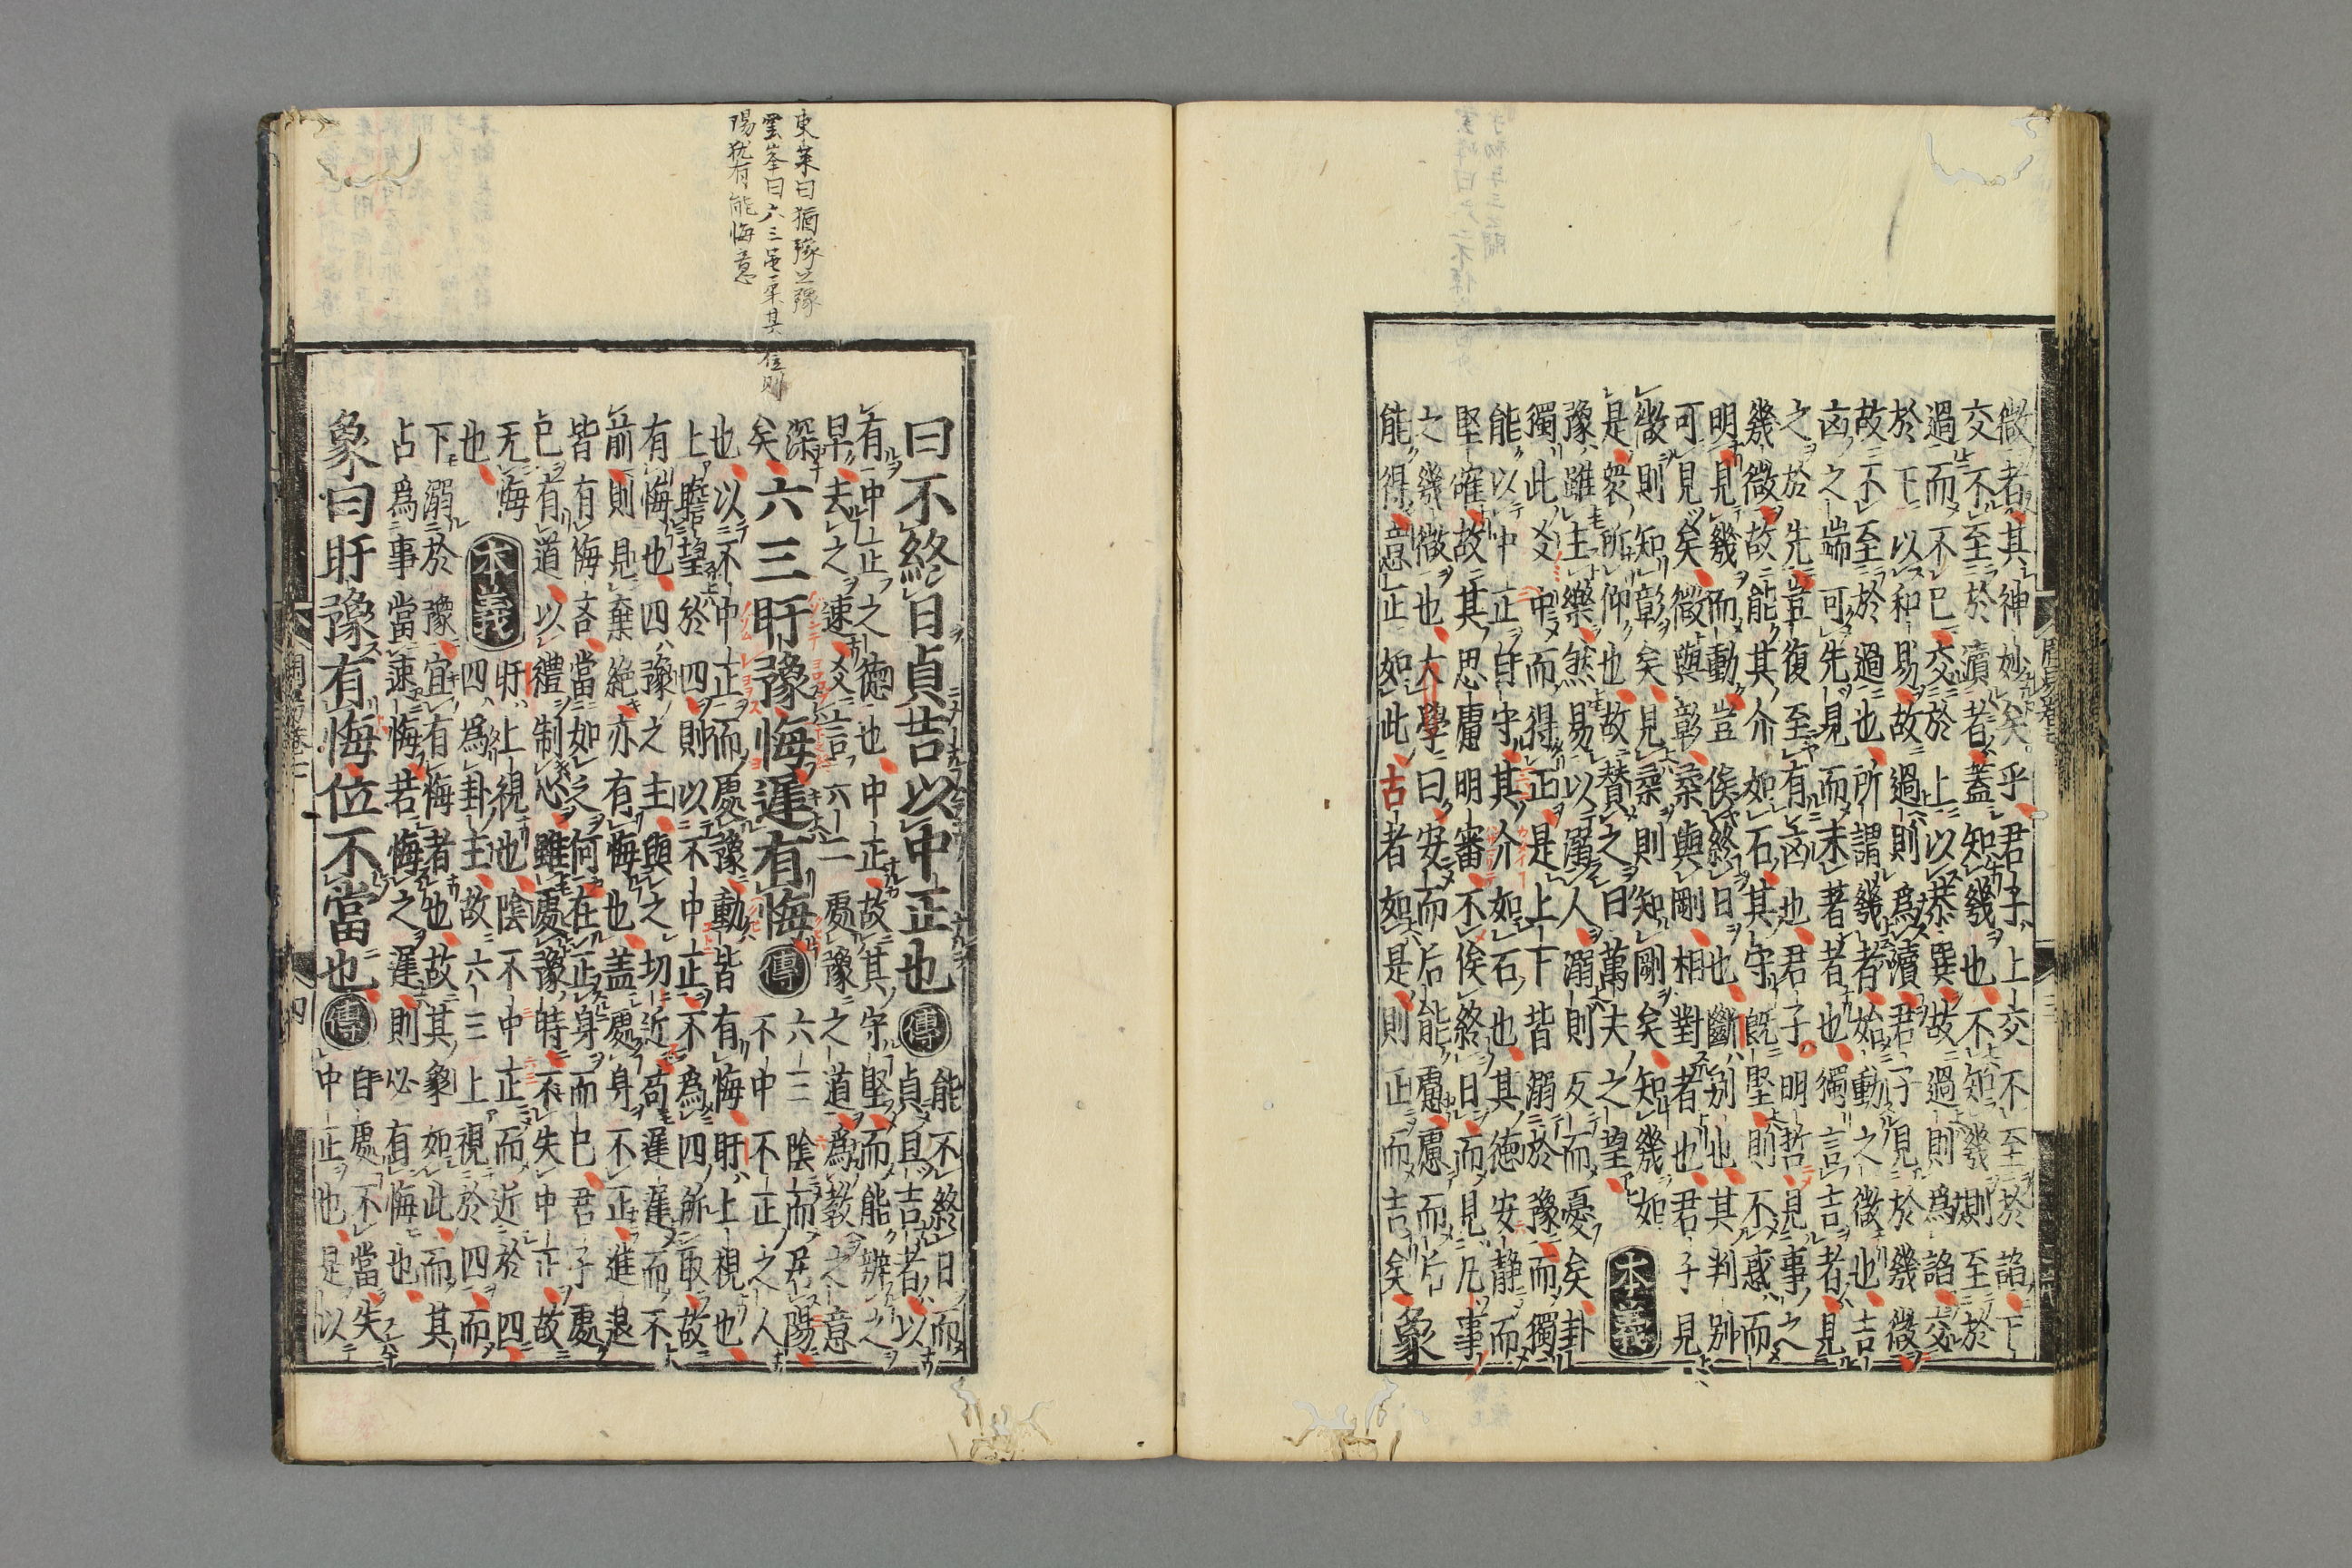 微者其神妙矣乎君子上交不至於諂下
交不至於瀆者蓋知幾也不知幾則至於
過而不已交於上以恭巽故過則為諂交
於下以和易故過則為瀆君子見於幾微
故不至於過也所謂幾者始動之微也吉
凶之端可先見而未著者也獨言吉者見
之於先豈復至有凶也君子明哲見事之
幾微故能其介如石其守既堅則不惑而
明見幾而動豈俟終日也斷別也其判別
可見矣微與彰柔與剛相對者也君子見
微則知彰矣見柔則知剛矣知幾如
是衆所仰也故贊之曰萬夫之望本義
豫雖主樂然易以溺人溺則反而憂矣卦
獨此爻中而得正是上下皆溺於豫而獨
能以中正自守其介如石也其德安靜而
堅確故其思慮明審不俟終日而見凡事
之幾微也大學曰安而后能慮慮而后
能得意正如此古者如是則正而吉矣象
東萊曰猶豫之豫
雲峯曰六三虽柔其位則
陽犹有能悔意
曰不終日貞吉以中正也傳能不終日而
貞且吉者以
有中正之德也中正故其守堅而能辨之
早去之速爻言六二處豫之道為教之意
深矣六三盱豫悔遲有悔傳六三陰而居陽
不中不正之人
也以不中正而處豫動皆有悔盱上視也
上瞻望於四則以不中正不為四所取故
有悔也四豫之主與之切近苟遲遲而不
前則見棄絕亦有悔也蓋處身不正進退
皆有悔吝當如之何在正身而已君子處
已有道以禮制心雖處豫時不失中正故
无悔也本義盱上視也陰不中正而近於四
四為卦主故六三上視於四而
下溺於豫宜有悔者也故其象如此而其
占為事當速悔若悔之遲則必有悔也
象曰盱豫有悔位不當也傳自處不當失
中正也是以